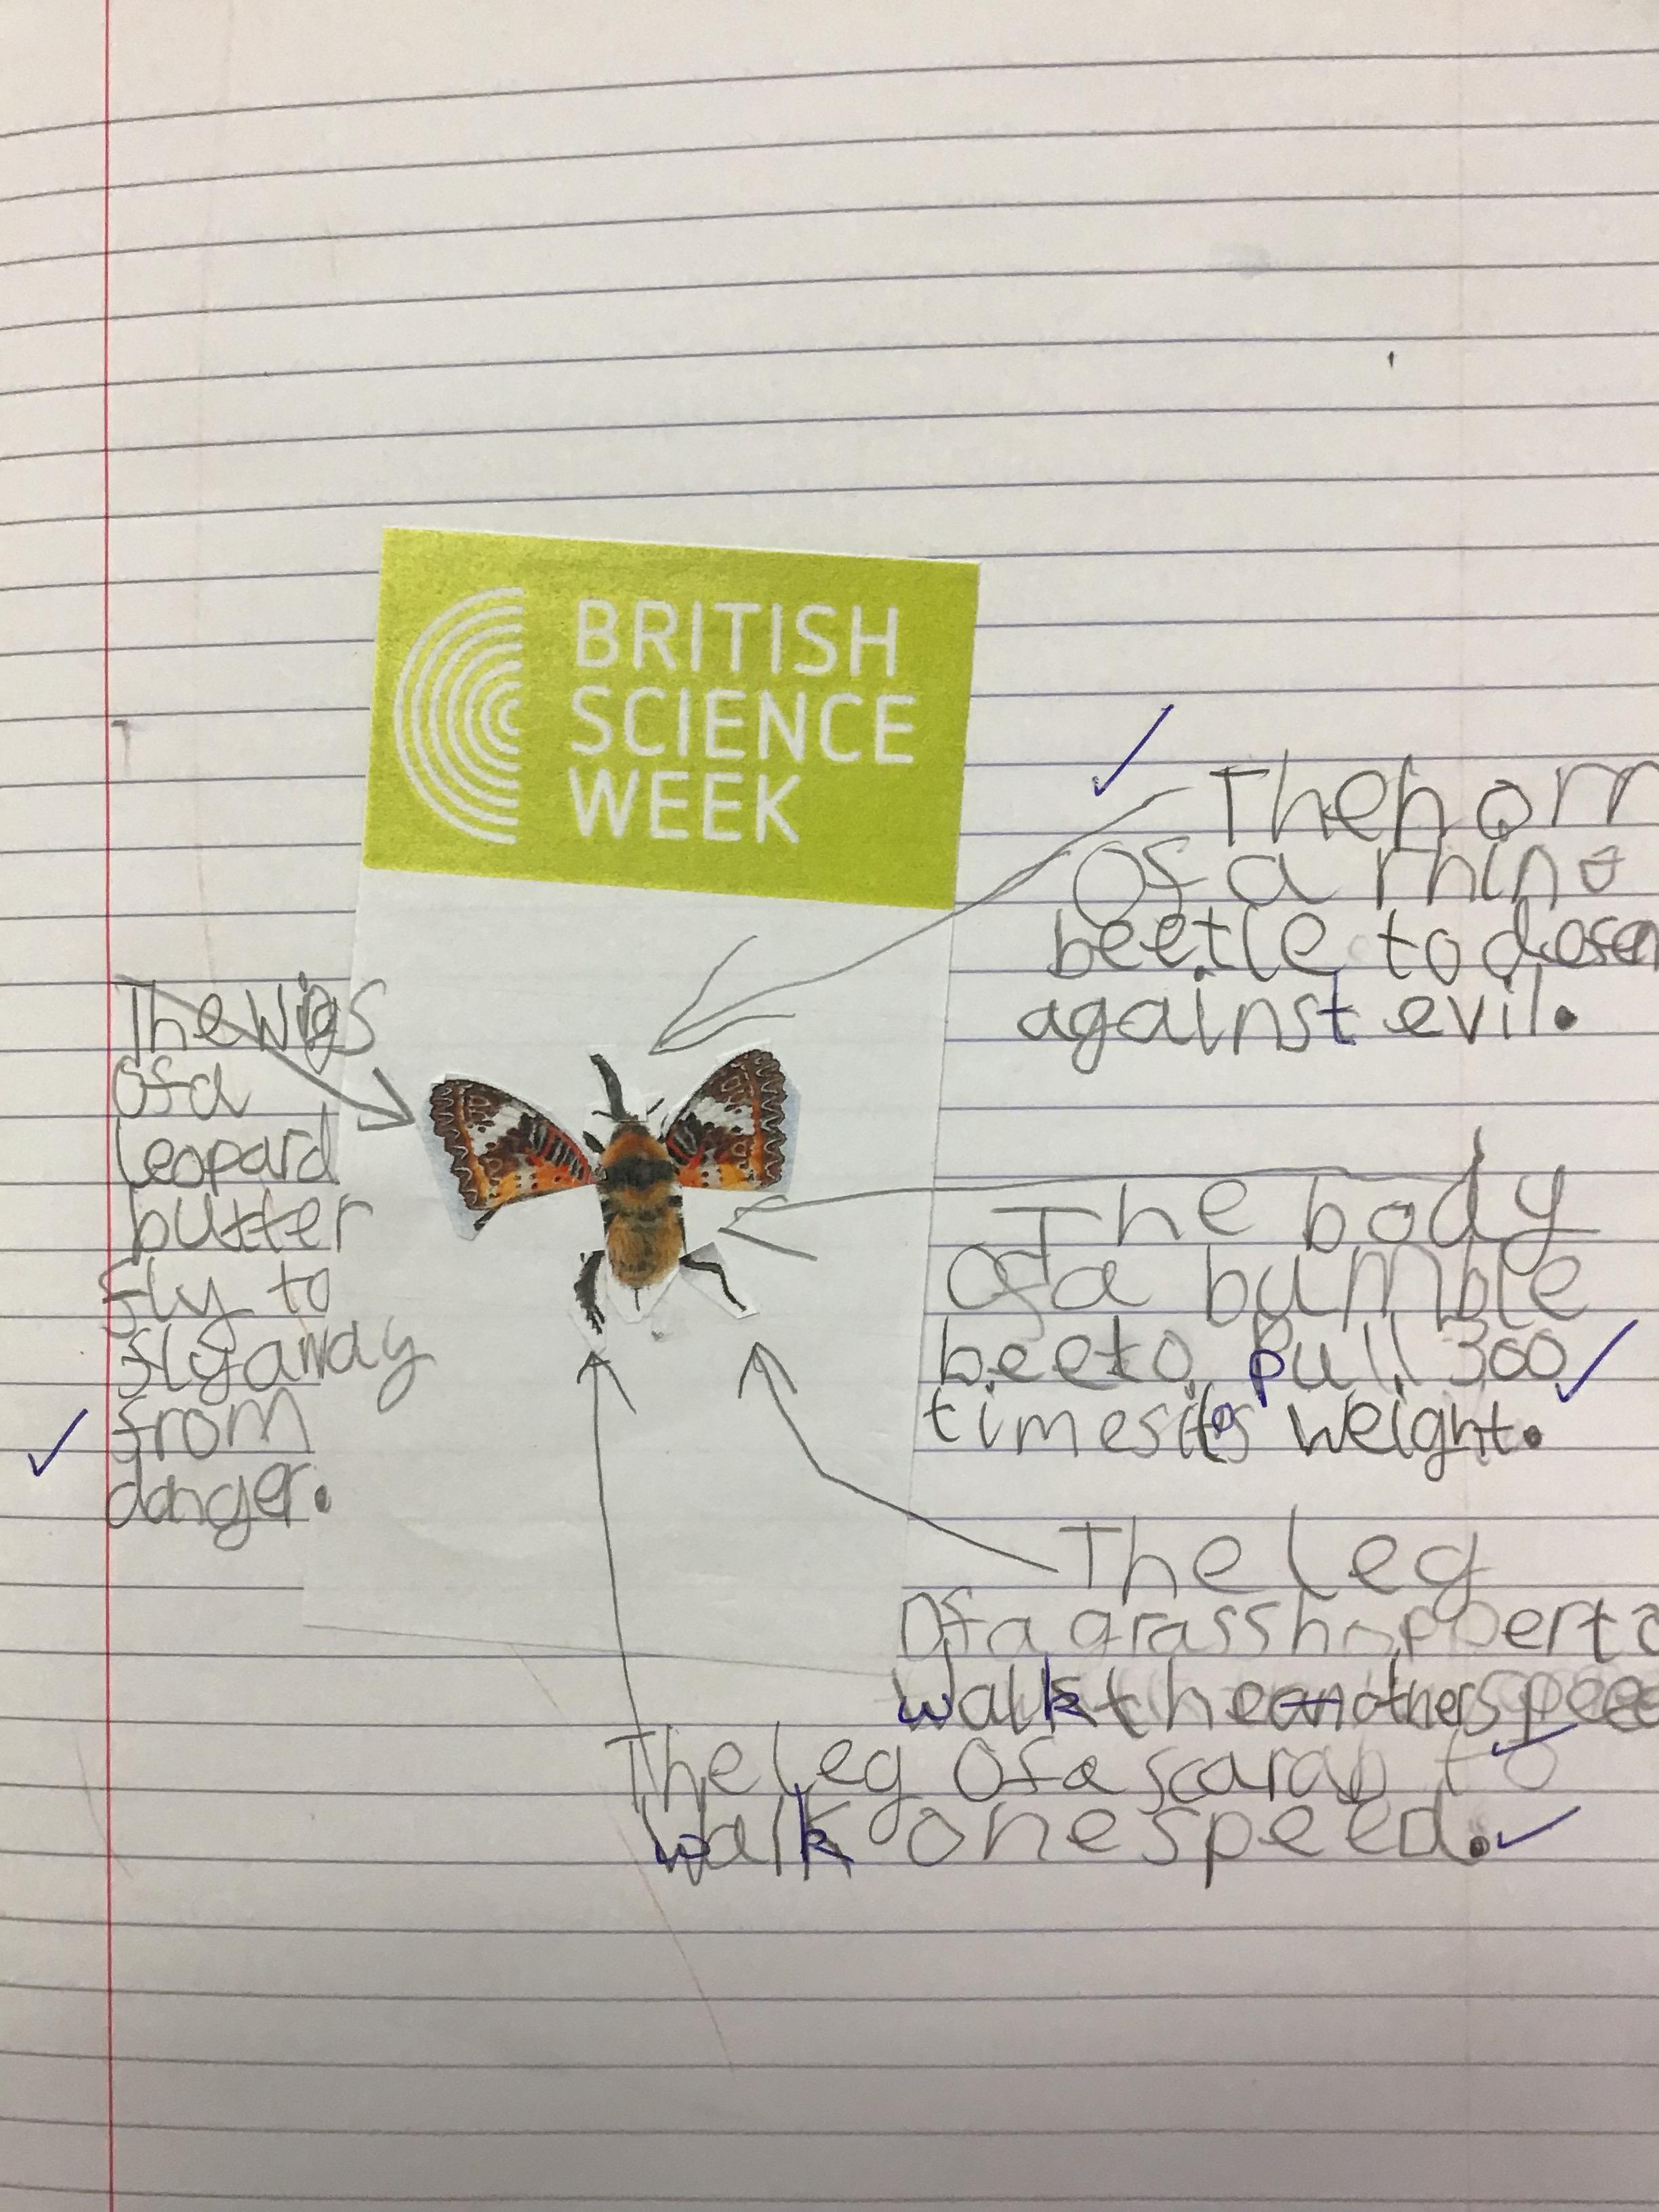 BRITISH
SCIENCE
WEEK
The horn
of a rhino
beetle to
against evil.
The wigs
of a
leopard
butter
fly to
fly away
from
danger.
The body
of a bumble
bee to pull 300
times its weight.
The leg
Of a grasshopper to
walk the another speed
The leg Of a scarab to
walk one speed.